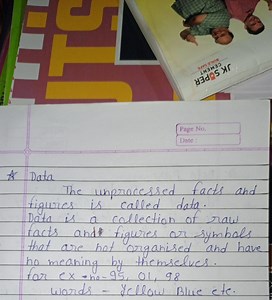 JK SUPER
CEMENT
Page No.
Date :
Data
The unprocessed facts and
figures is called data.
Data is a collection of raw
facts and figures or symbols
that are not organised and have
no meaning by themselves.
for ex - no - 95, 01, 98
words - Yellow Blue etc.